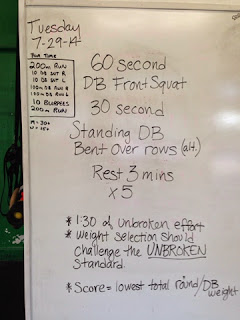 Tuesday
7-29-14
FOR TIME
200m RUN
10 DB SOT R
10 DB SOT L
100m DB RUN R
100m DB RUN L
10 BURPEES
200m RUN
M = 30#
W = 15#
60 second
DB Front Squat
30 second
Standing DB
Bent Over rows (alt.)
Rest 3 mins
x5
* 1:30 of Unbroken effort
* weight selection should
challenge the UNBROKEN
Standard.
* Score = lowest total round/DB
weight